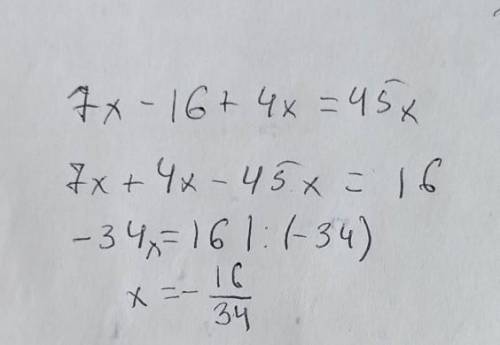 7x - 16 + 4x = 45x
7x + 4x - 45x = 16
-34x = 16 | : (-34)
x = - 16/34